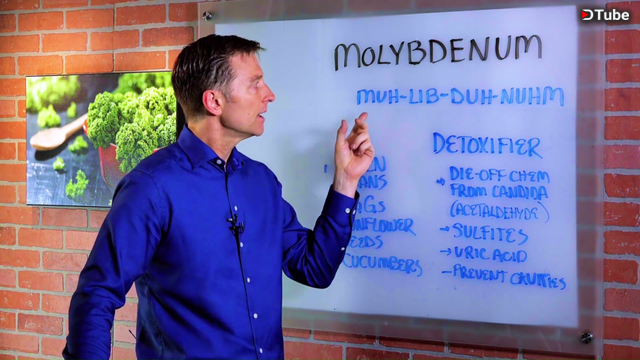 DTube
MOLYBDENUM
MUH-LIB-DUH-NUHM
CUCUMBERS
DETOXIFIER
DIE-OFF CHEM
FROM CANDIDA
(ACETALDEHYDE)
SULFITES
URIC ACID
PREVENT CAVITIES